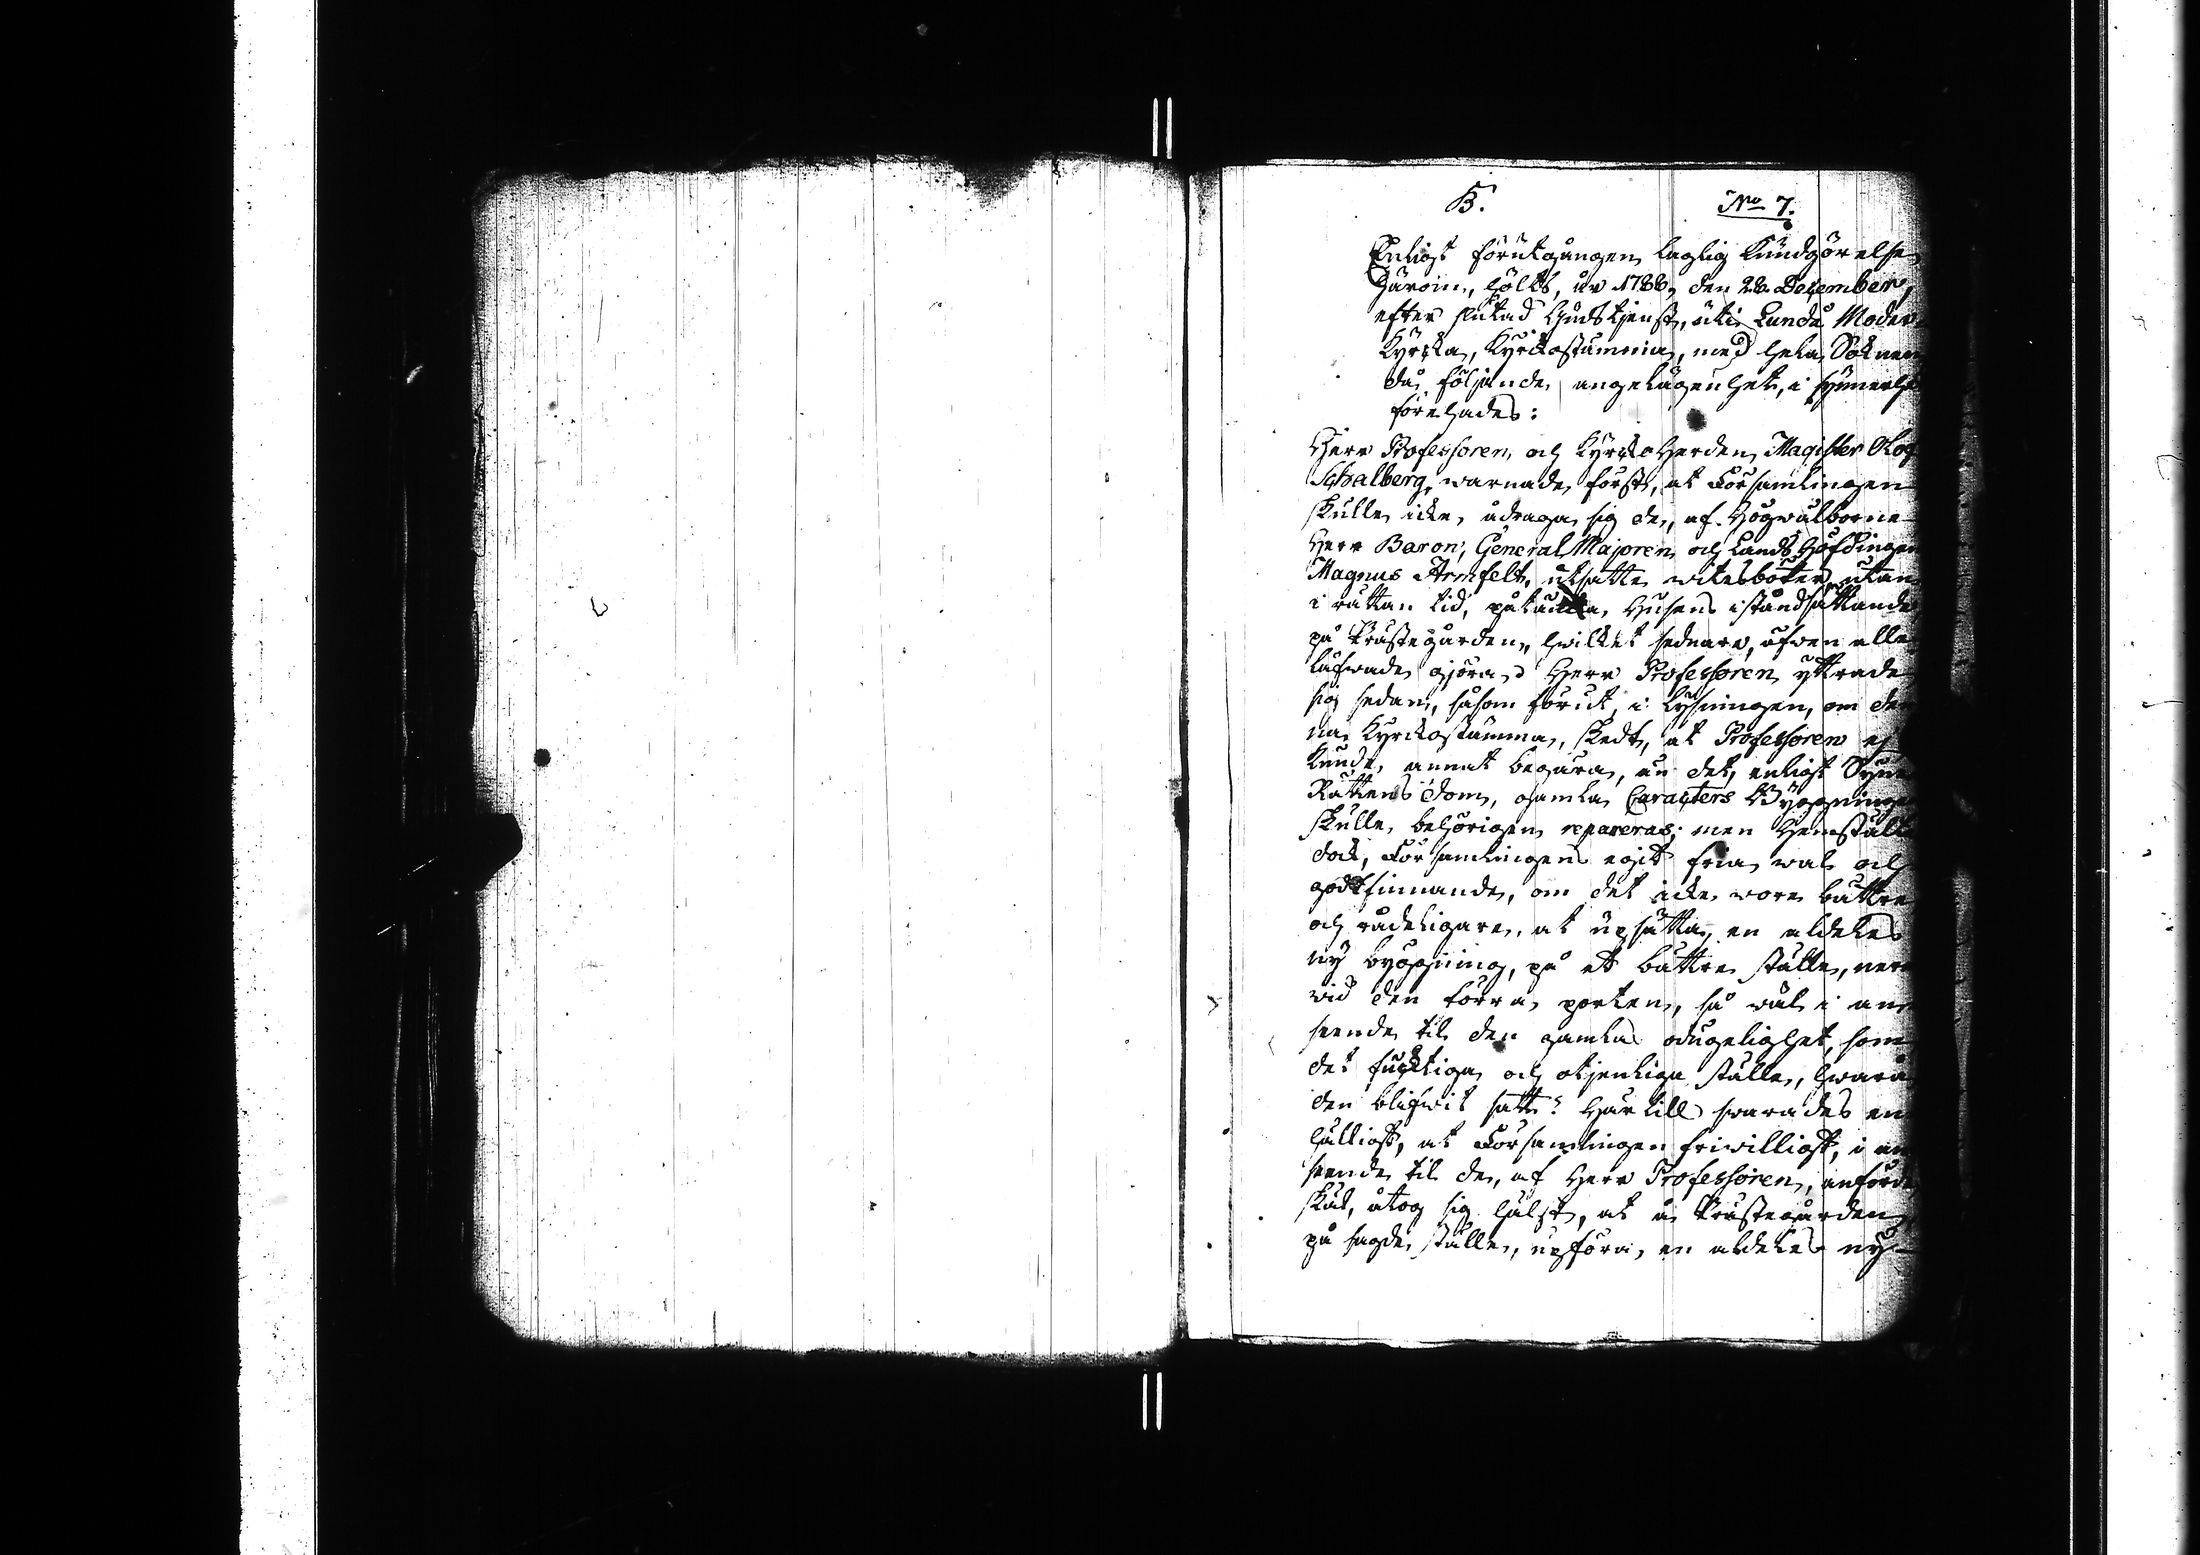 B. No 7.
Enligt förutgången laglig Kundgörelse
härom, hölts, år 1788, den 28 December,
efter slutad Gudstjenst, uti Lunda Moder
Kyrka, Kyrckostämma, med hela Soknen
då följande angelägenhet, i synnerhet
förehades:
Herr Professoren och Kyrkoherden Magister Olof
Schalberg, warnade först, at Församlingen
skulle icke, ådraga sig de, af Högwälborne
Herr Baron, General Majoren och Landshöfdingen
Magnus Armfelt, utsatte witesböter, utan
i rättan tid, påtänka, Husens iståndsättande
på Prästegården, hwilket sednare, äfwen alle
låfwade gjöra. Herr Professoren yttrade
sig sedan, såsom förut, i lysningen, om den
na Kyrckostämma, skedt, at Professoren ej
kunde, annat begära, än det, enligt Syne
Rättens dom, gamla Caracters Byggningen
skulle, behörigen repareras; men hemstält
dock, Församlingens egit fria wal och
godtfinnande, om det icke wore bättre
och rådeligare, at upsätta, en aldeles
ny byggning, på et bättre ställe, ner
wid den förra porten, så wäl i an
seende til den gamlas odugelighet, som
det fucktiga och otjenliga ställe, hwara
den blifwit satt? Här till swarades en
hälligt, at Församlingen friwilligt, i an
seende til de, af Herr Professoren, anförde
skäl, åtog sig hälst, at å Prästegården
på sagde ställe, upföra, en aldeles ny